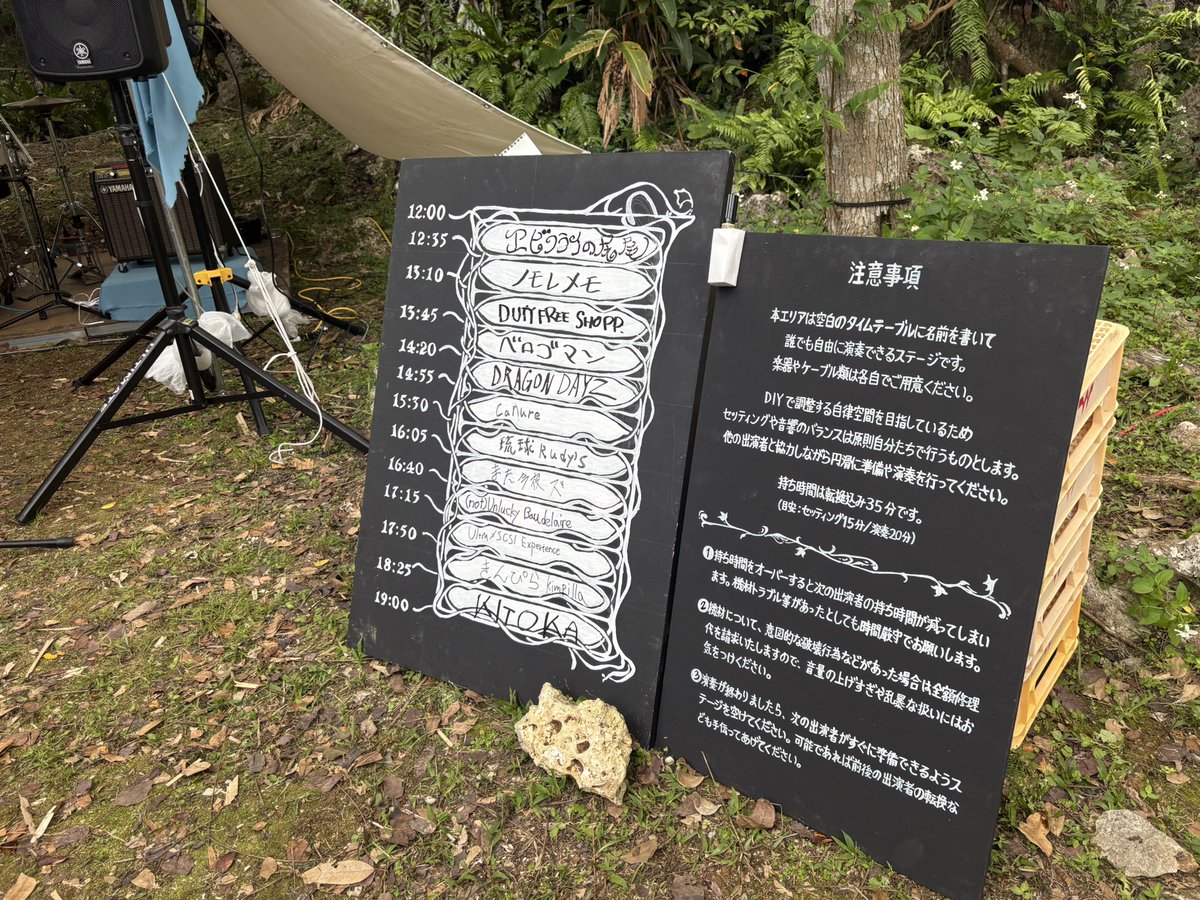 YAMAHA
YAMAHA
12:00
12:35
13:10
13:45
14:20
14:55
15:30
16:05
16:40
17:15
17:50
18:25
19:00
ノモレメモ
DUTY FREE SHOPP.
ベロゴマン
DRAGON DAYZ
Canure
琉球 Rudy's
(not)Unlucky Baudelaire
Ultra/SCSI Experience
きんぴら Kimpilla
KITOKA
注意事項
本エリアは空白のタイムテーブルに名前を書いて
誰でも自由に演奏できるステージです。
楽器やケーブル類は各自でご用意ください。
DIYで調整する自律空間を目指しているため
セッティングや音響のバランスは原則自分たちで行うものとします。
他の出演者と協力しながら円滑に準備や演奏を行ってください。
持ち時間は転換込み35分です。
(目安:セッティング15分/演奏20分)
❶持ち時間をオーバーすると次の出演者の持ち時間が減ってしまい
ます。機材トラブル等があったとしても時間厳守でお願いします。
❷機材について、意図的な破壊行為などがあった場合は全額修理
代を請求いたしますので、音量の上げすぎや乱暴な扱いにはお
気をつけください。
❸演奏が終わりましたら、次の出演者がすぐに準備できるようス
テージを空けてください。可能であれば前後の出演者の転換な
ども手伝ってあげてください。